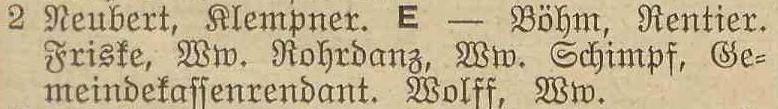 2 Neubert, Klempner. E — Böhm, Rentier.
Friske, Ww. Rohrdanz, Ww. Schimpf, Ge-
meindekassenrendant. Wolff, Ww.